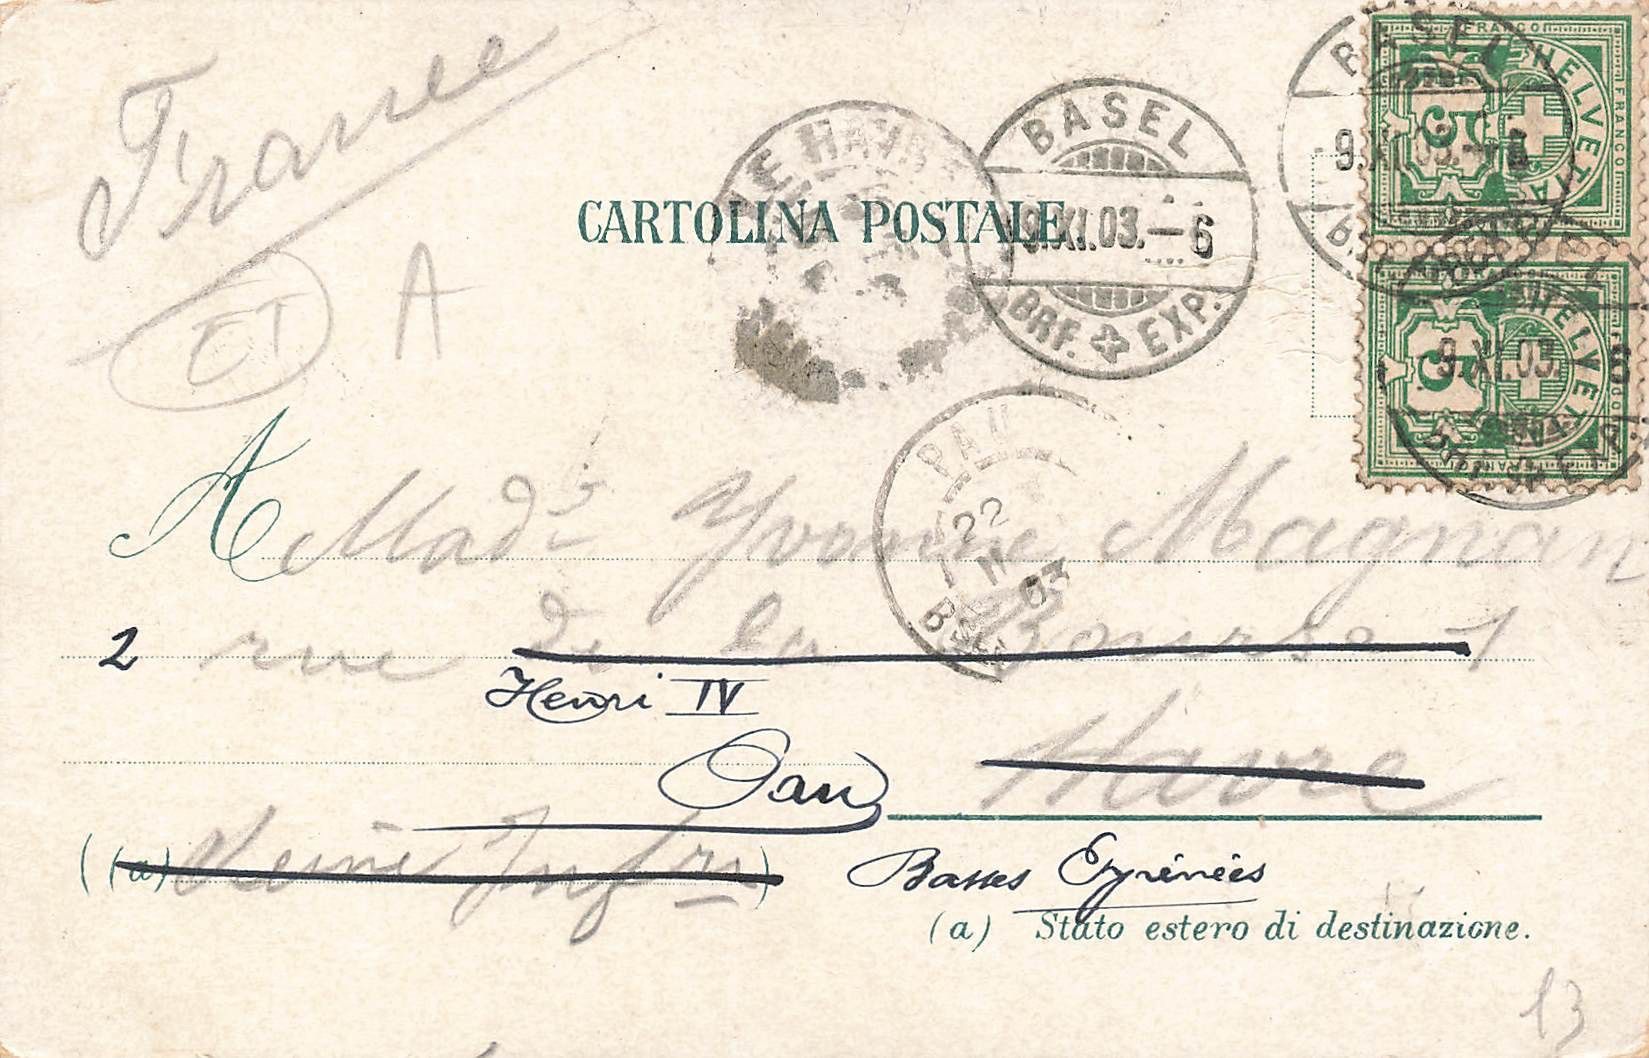 France
BASEL
LE HAVRE
BASEL
9.XI.03.–6
BRF. EXP.
9.XI.03.
FRANCO
HELVETIA
FRANCO
5
CARTOLINA POSTALE.
ET
A
9.XI.03. 6
HELVETIA
FRANCO
5
PAU
22
11
03
A Made Yvonne Magnan
2 rue de la Bourse 1
Henri IV
Pau
Havre
((a) Seine Infre)
Basses Pyrénées
(a) Stato estero di destinazione.
13